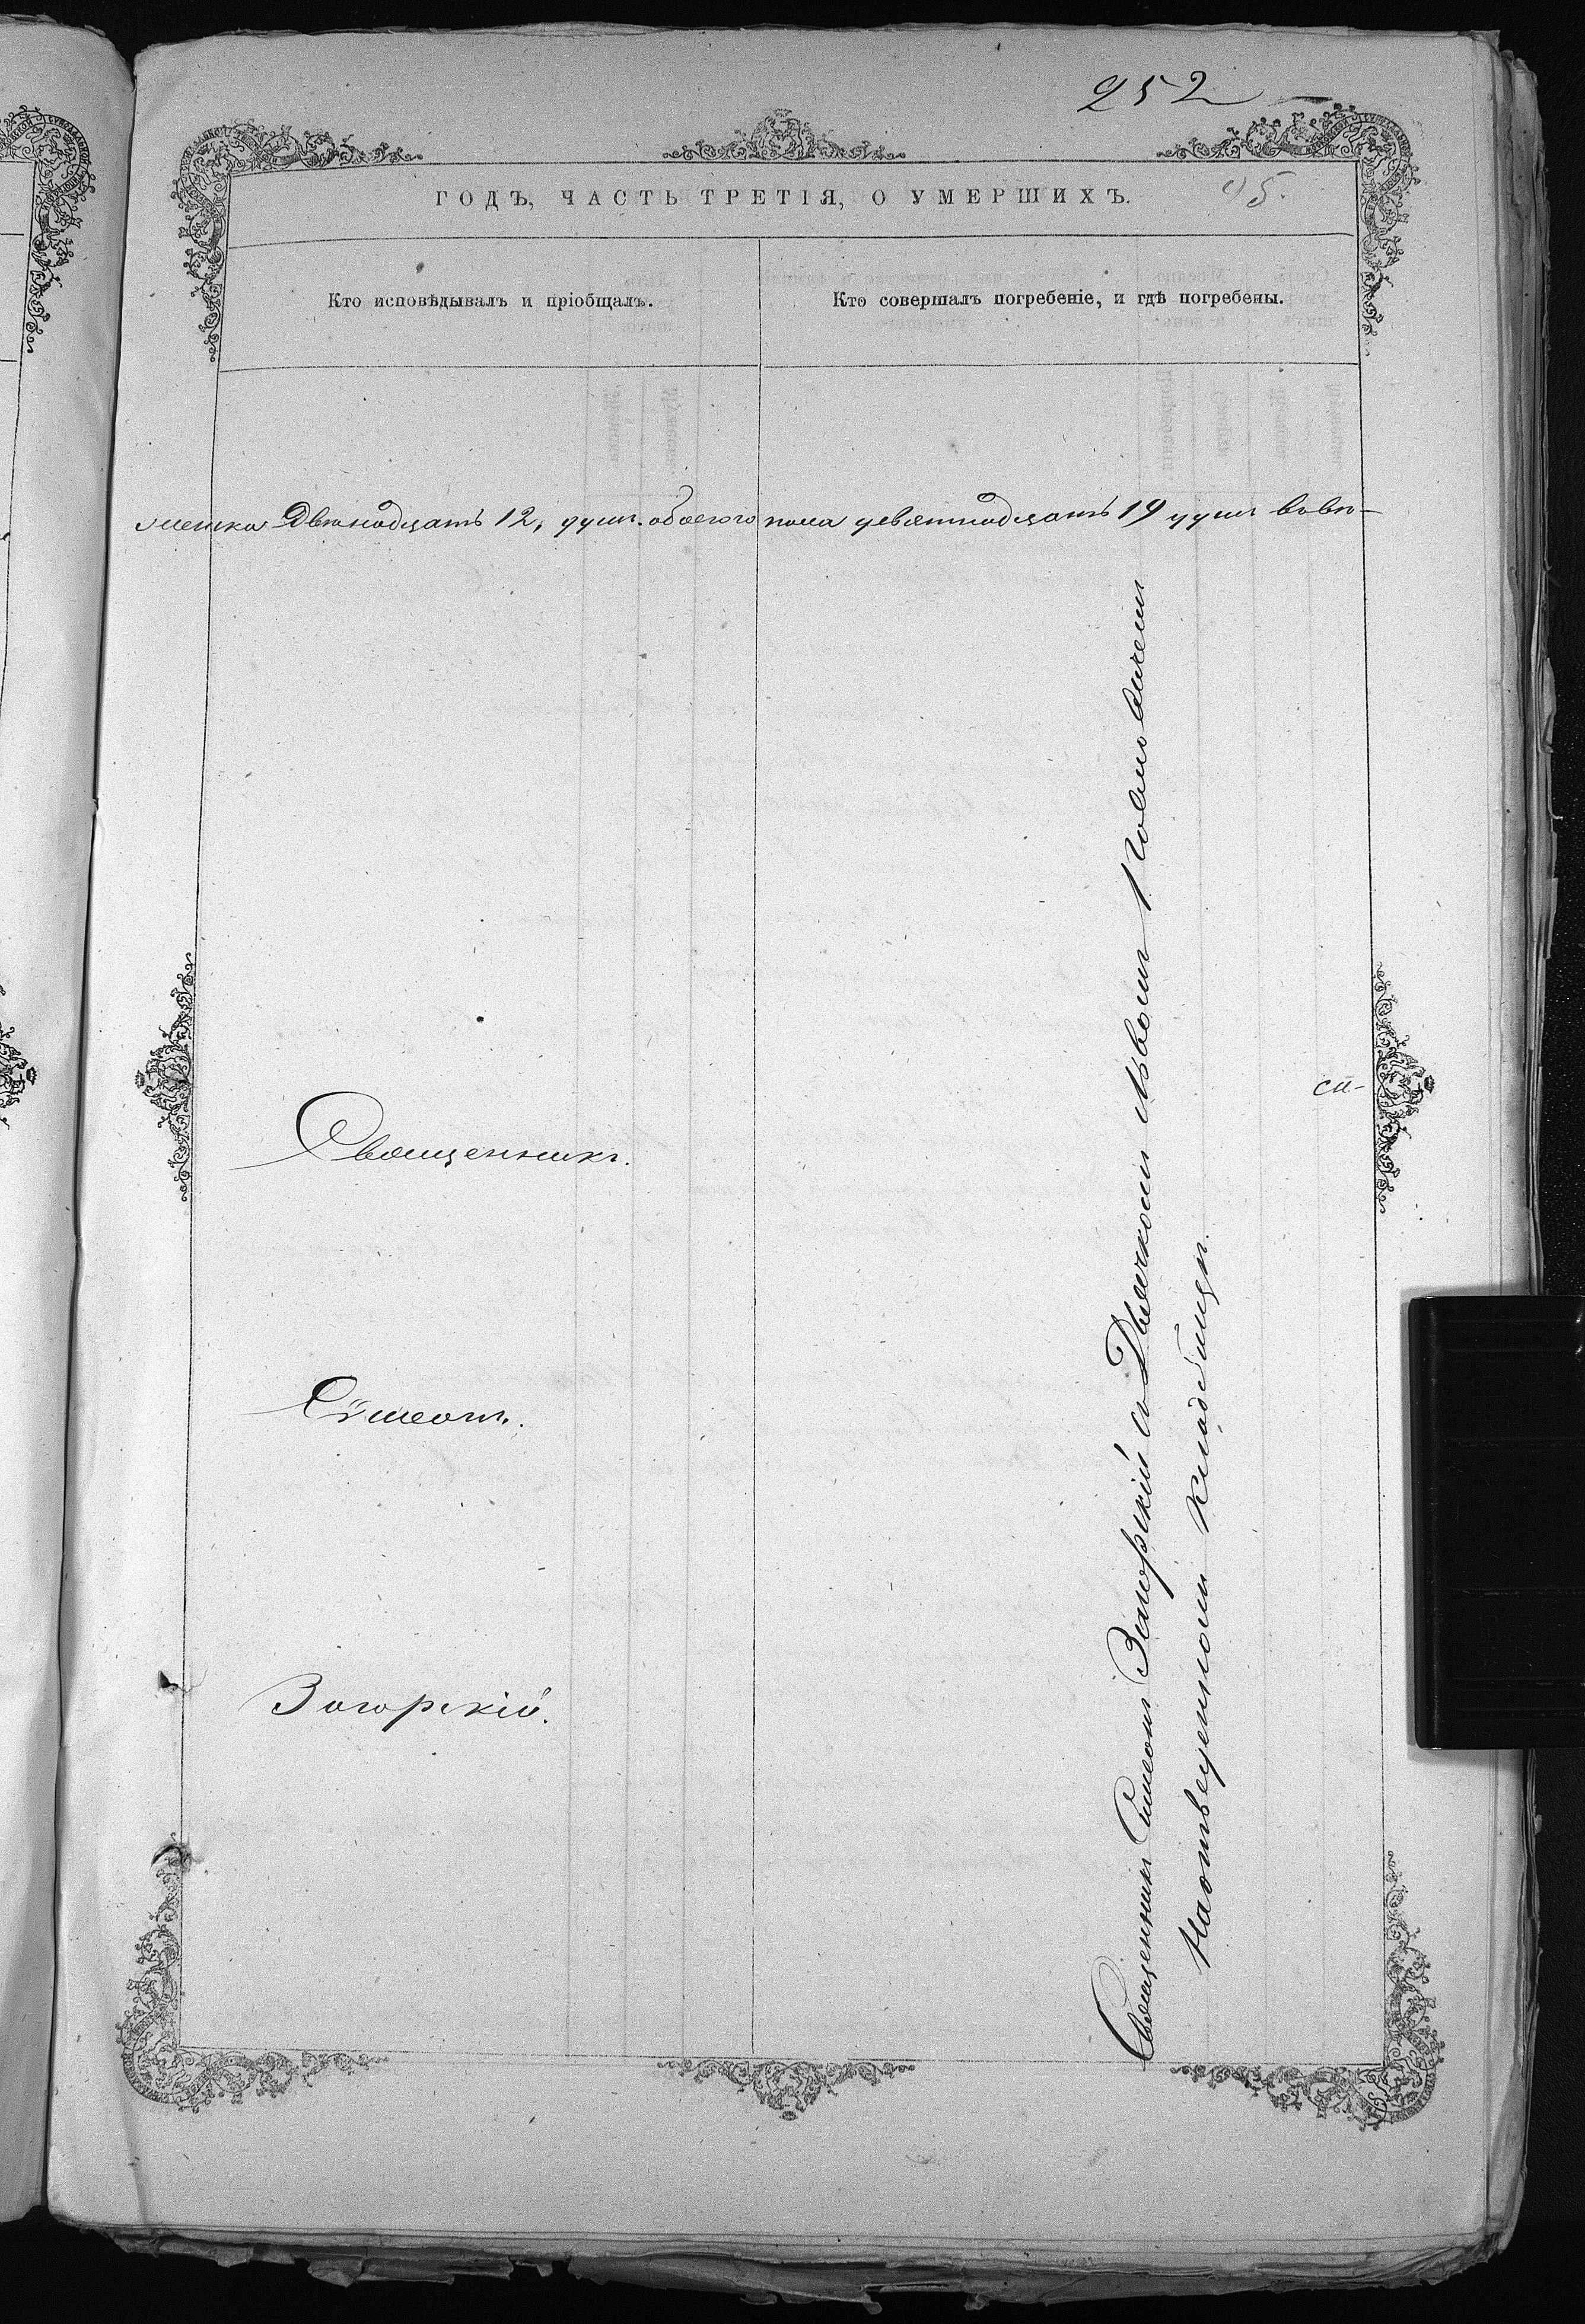 252
95.
ГОДЪ, ЧАСТЬ ТРЕТІЯ, О УМЕРШИХЪ.
Кто исповѣдывалъ и пріобщалъ.
Кто совершалъ погребеніе, и гдѣ погребены.
Двѣнадцать 12, душъ. обоего пола девятнадцать 19 душъ
Священникъ.
Сѵмеонъ.
Загорскій.
Священникъ Симеонъ Загорскій съ Дьячкомъ Львомъ
На отведенномъ кладбищѣ.